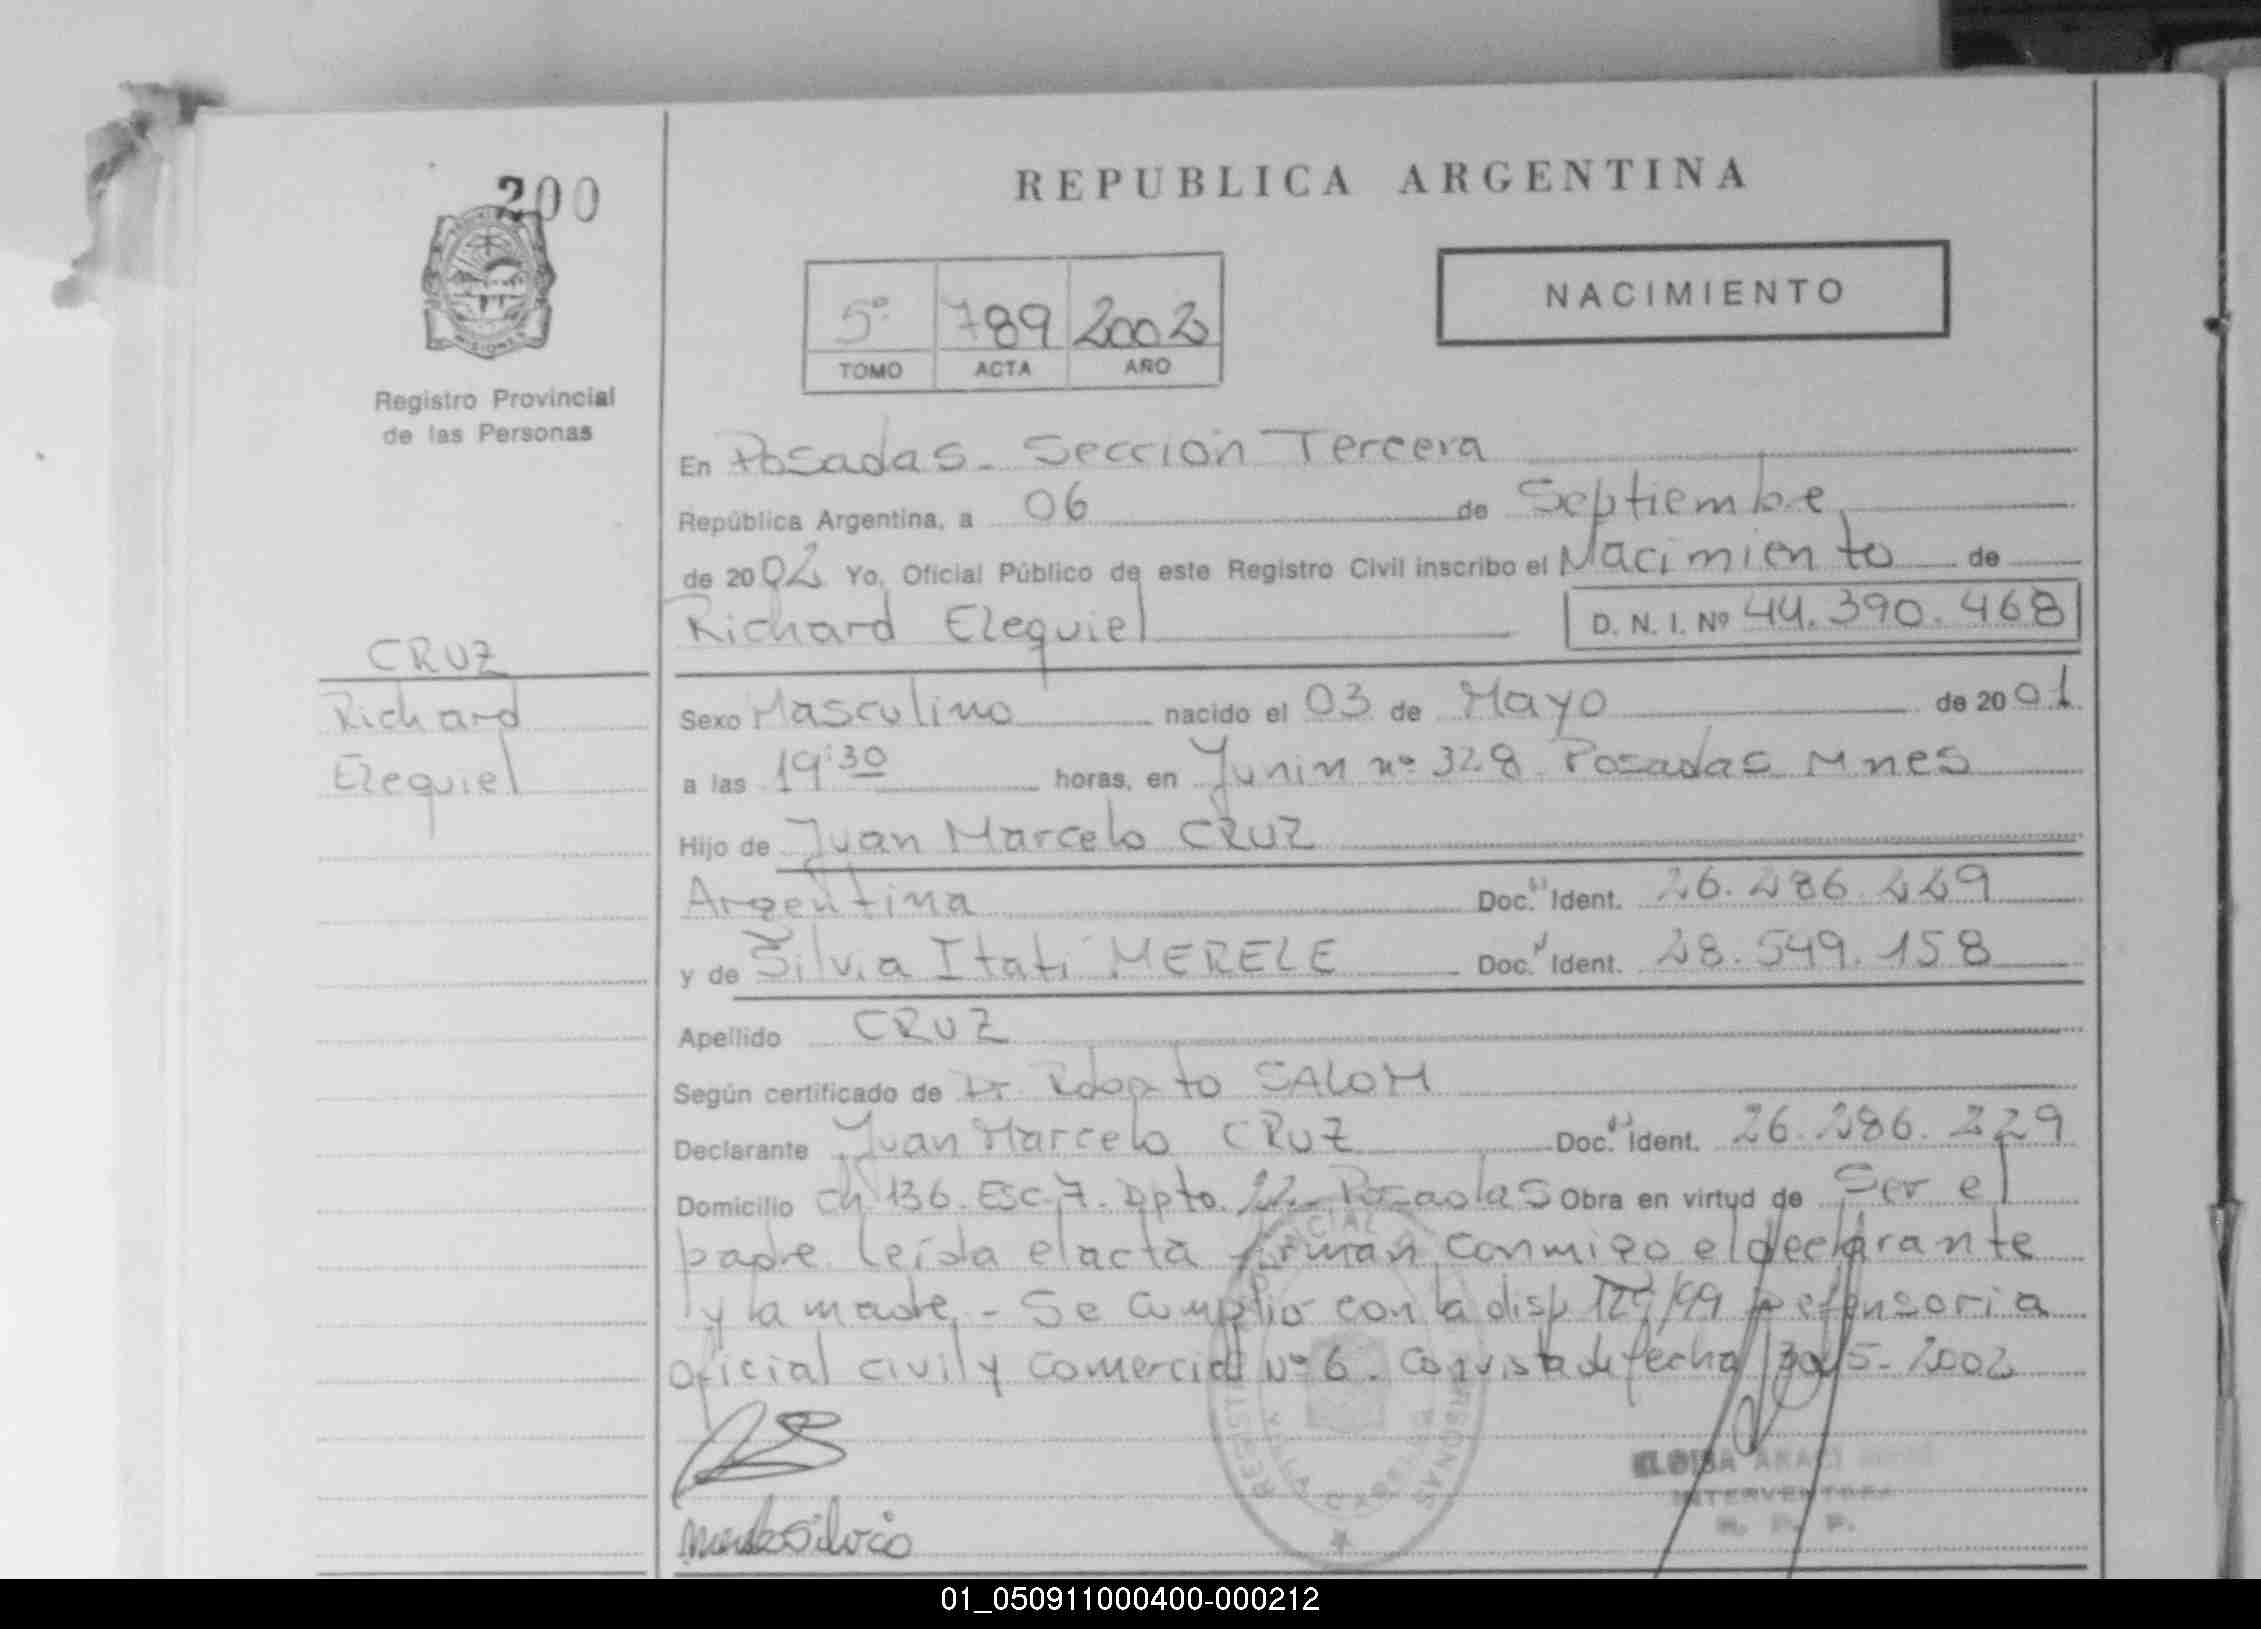 200
REPUBLICA ARGENTINA
NACIMIENTO
5º 789 2002
TOMO ACTA AÑO
MISIONES
Registro Provincial
de las Personas
En Posadas. Sección Tercera
República Argentina, a 06 de Septiembre
de 2002 Yo, Oficial Público de este Registro Civil inscribo el Nacimiento de
Richard Ezequiel D. N. I. Nº 44.390.468
CRUZ
Richard
Ezequiel
Sexo Masculino nacido el 03 de Mayo de 2001
a las 19:30 horas, en Junin nº 328 Posadas Mnes
Hijo de Juan Marcelo CRUZ
Argentina Doc. Ident. 26.286.229
y de Silvia Itati MERELE Doc. Ident. 28.549.158
Apellido CRUZ
Según certificado de Dr. Roberto SALOM
Declarante Juan Marcelo CRUZ Doc. Ident. 26.286.229
Domicilio Ch 136. Esc. 7. Dpto. 22. Posadas Obra en virtud de Ser el
padre leida el acta firman conmigo el declarante
y la madre. - Se cumplio con la disp /99 Defensoria
oficial civil y comercial nº 6. con vista de fecha 30/5-2002
Silvia
REGISTRO PROVINCIAL PERSONAS
ELOISA
INTERVENTORA
R. P. P.
01_050911000400-000212